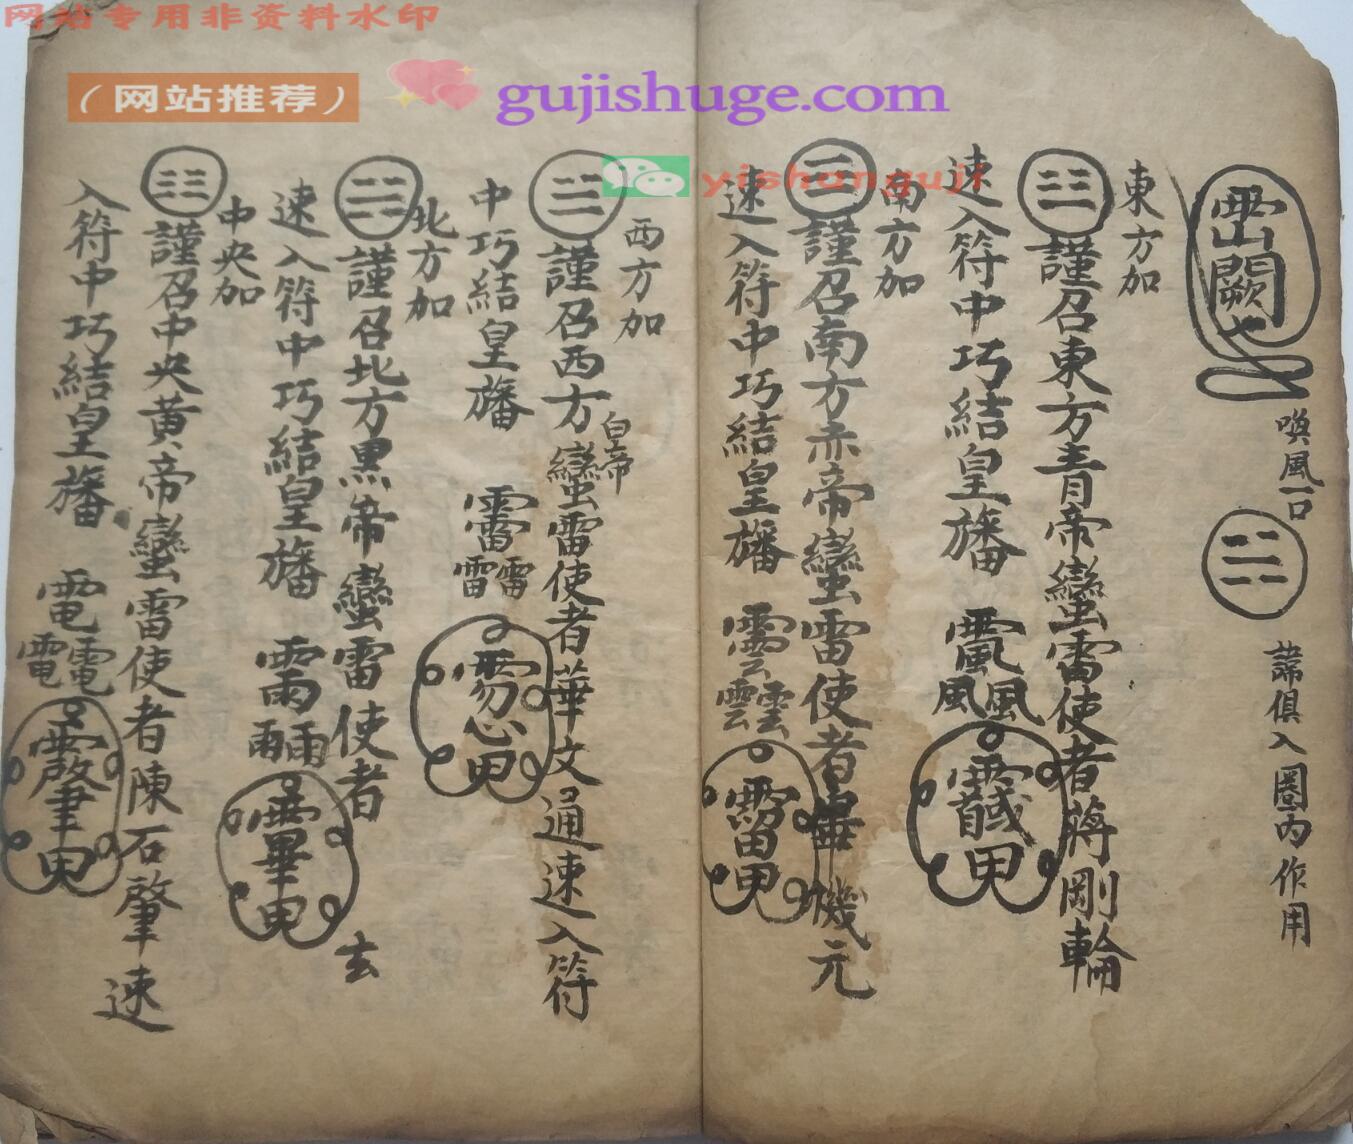 网站专用非资料水印
（网站推荐）
gujishuge.com
yishanguji
喚風一口
諱俱入圈內作用
東方加
謹召東方青帝蠻雷使者蔣剛輪
速入符中巧結皇旛
風風
南方加
謹召南方赤帝蠻雷使者畢機元
速入符中巧結皇旛
雲雲雲
西方加
謹召西方白帝蠻雷使者華文通速入符
中巧結皇旛
雷雷雷
北方加
謹召北方黑帝蠻雷使者
速入符中巧結皇旛
雨
玄
中央加
謹召中央黃帝蠻雷使者陳石肇速
入符中巧結皇旛
電電電